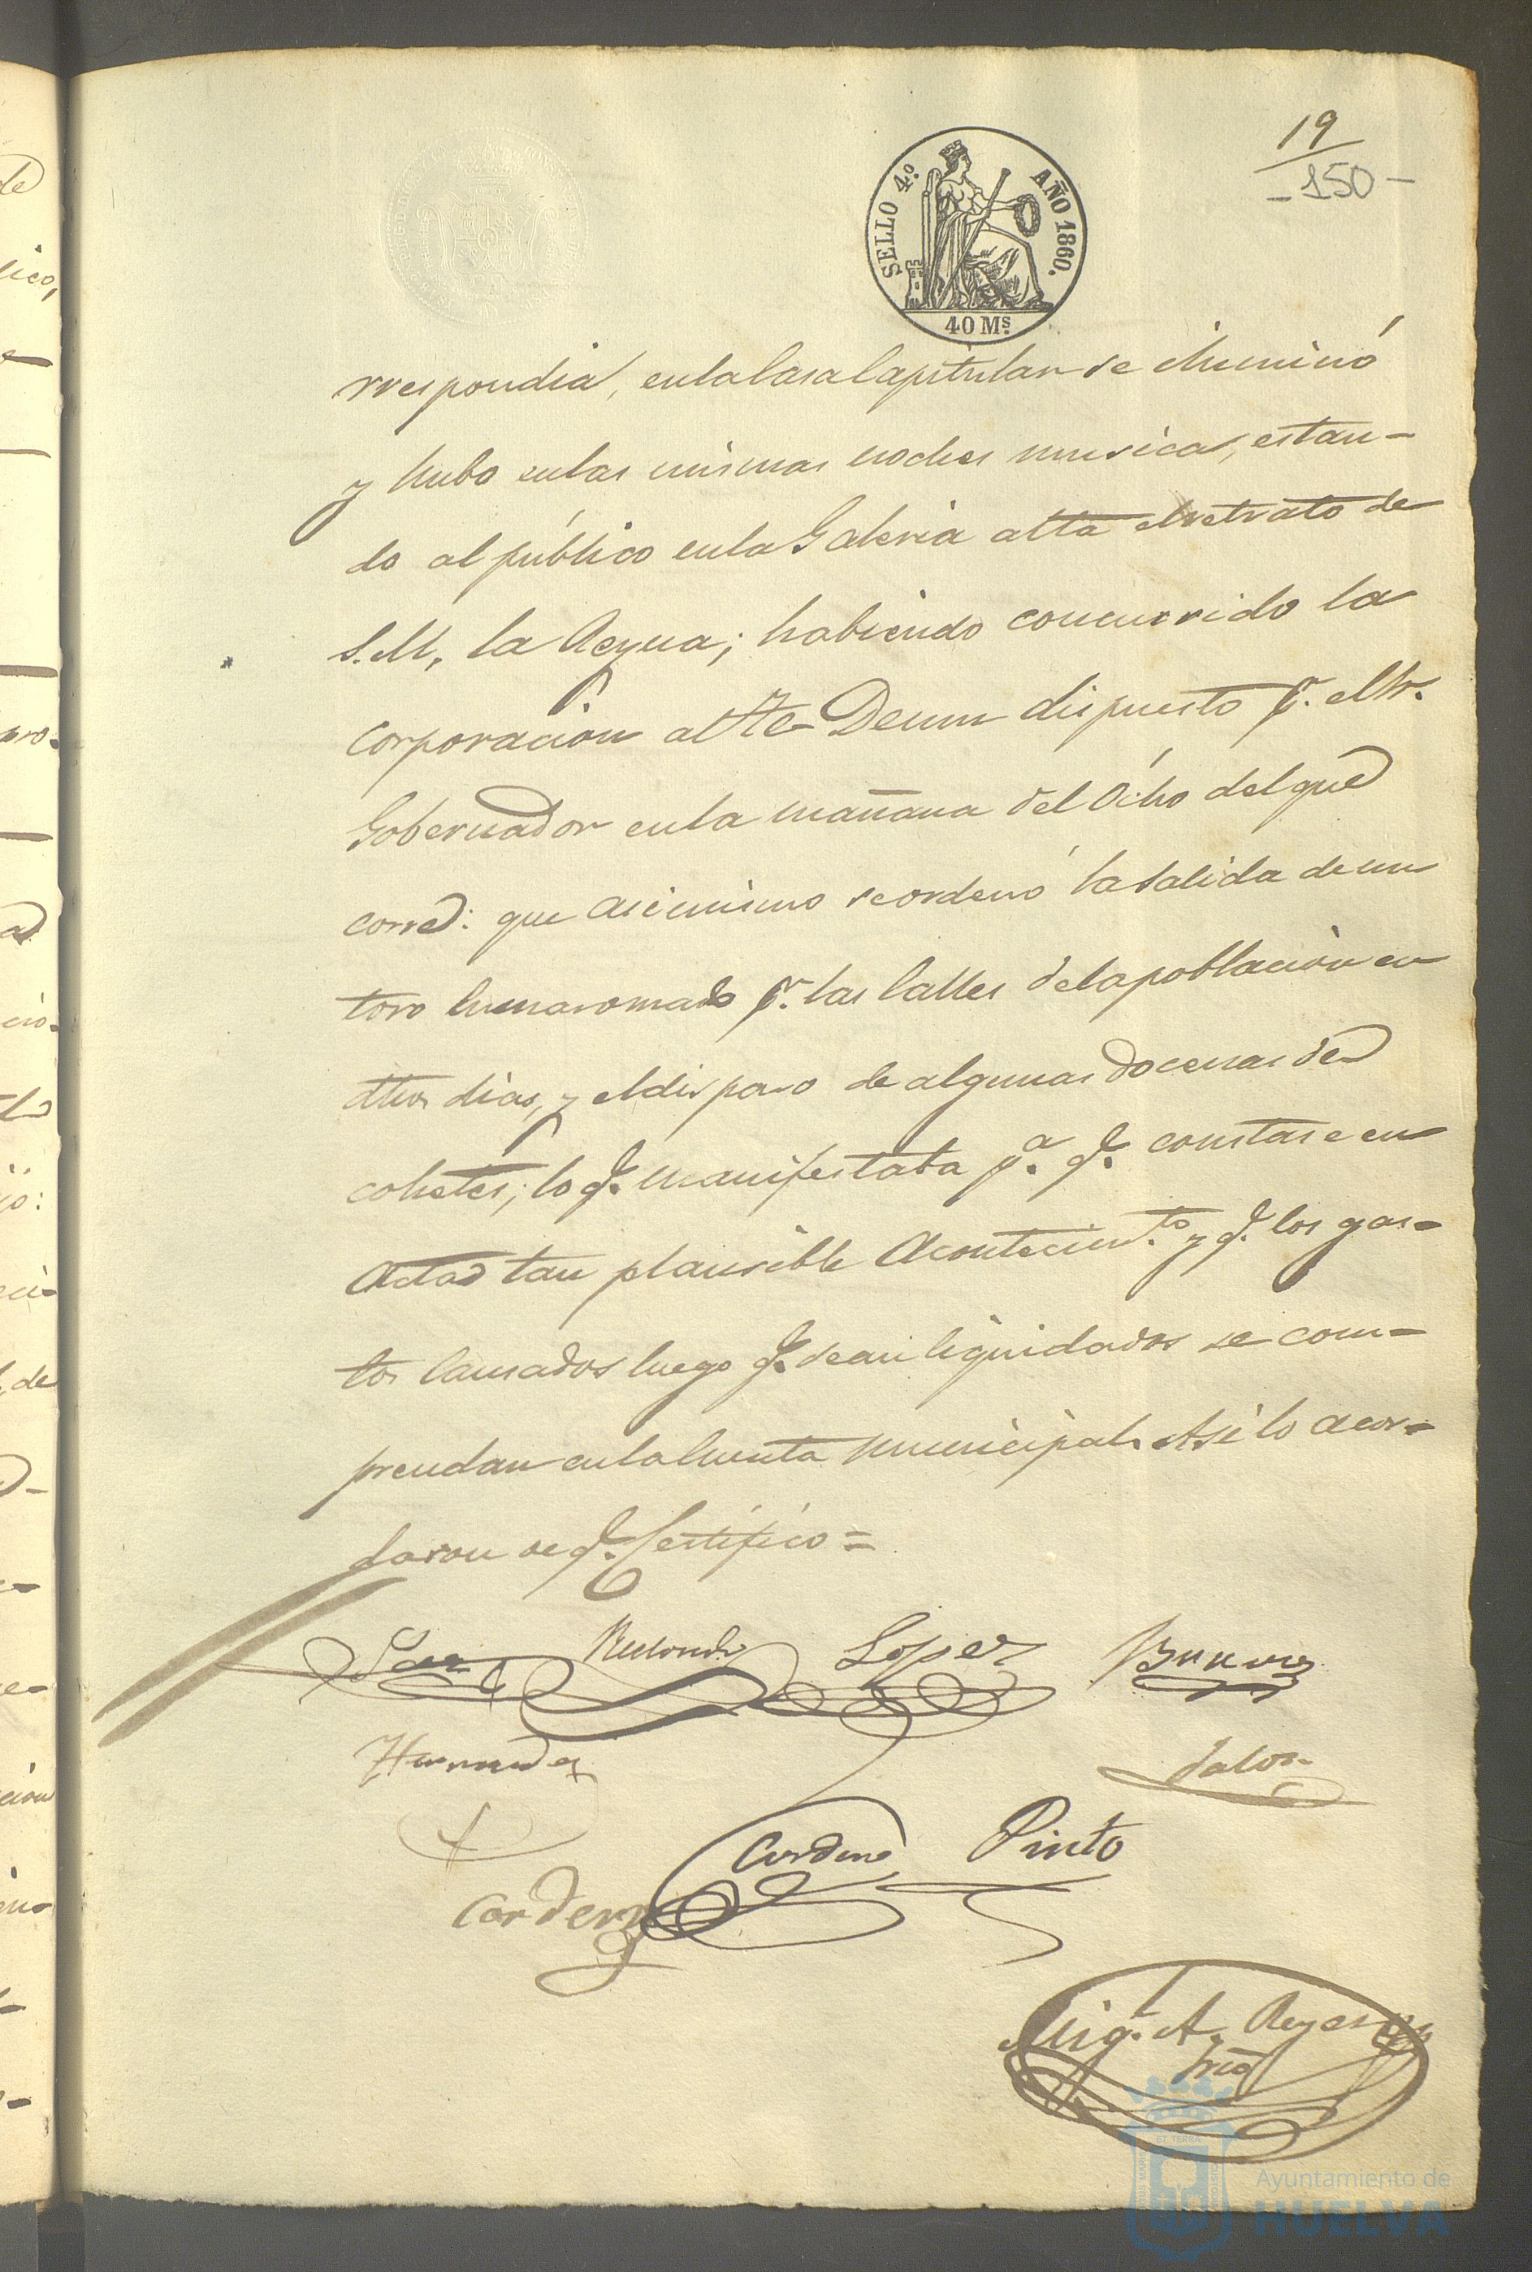 19
-150-
SELLO 4.º AÑO 1860.
40 Ms.
rrespondia, en la Casa Capitular se iluminó
y hubo en las mismas noches musica, estan-
do al público en la Galeria alta el retrato de
S.M. la Reyna; habiendo concurrido la
corporacion al Te Deum dispuesto pr. el Sr.
Gobernador en la mañana del Ocho del que
corre: que asimismo se ordenó la salida de un
toro enmaromado pr. las Calles de la poblacion en
dhos dias, y el disparo de algunas docenas de
cohetes; lo q.e manifestaba p.a q.e constase en
Acta tan plausible Acontecim.to y q.e los gas-
tos causados luego q.e sean liquidados se com-
prendan en la Cuenta municipal. Asi lo acor-
daron de q.e Certifico=
Redondo Lopez
Hernandez
Cordero Pinto
Cordero
Mig.l A. Reyes
Srio
Ayuntamiento de
HUELVA